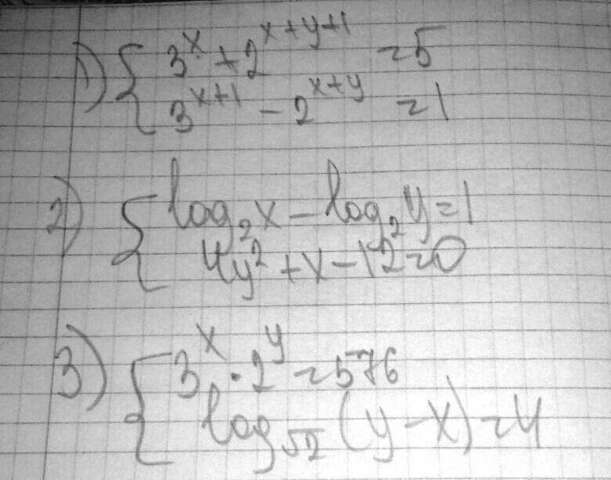 1) { 3^x + 2^{x+y+1} = 5
3^{x+1} - 2^{x+y} = 1
2) { log₂x - log₂y = 1
4y² + x - 12 = 0
3) { 3^x · 2^y = 576
log_{√2}(y-x) = 4